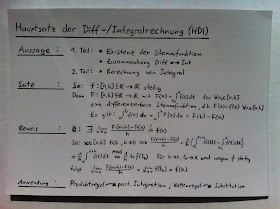 Hauptsatz der Diff-/Integralrechnung (HDI)
Aussage : 1. Teil: • Existenz der Stammfunktion
• Zusammenhang Diff ↔ Int
2. Teil: • Berechnung von Integral
Sätze : Sei f: [a,b] ⊂ ℝ → ℝ stetig
Dann F: [a,b] ⊂ ℝ → ℝ mit F(x) = ∫ f(t) dt für alle x∈[a,b]
eine differenzierbare Stammfunktion, d.h. F'(x) = f(x) ∀x∈[a,b]
Es gilt: ∫ f(x) dx = ∫ F'(x) dx = F(b) - F(a)
Beweis : ∃ lim F(x+h) - F(x) / h = f(x)
Sei x∈[a,b] fest, F(x+h) - F(x) / h = 1/h (∫ f(t) dt - ∫ f(t) dt)
= 1/h ∫ f(t) dt = 1/h · h f( ) Für h→0, → x und wegen f stetig
folgt lim F(x+h) - F(x) / h = lim f( ) = f(x)
Anwendung : Produktregel → part. Integration, Kettenregel → Substitution